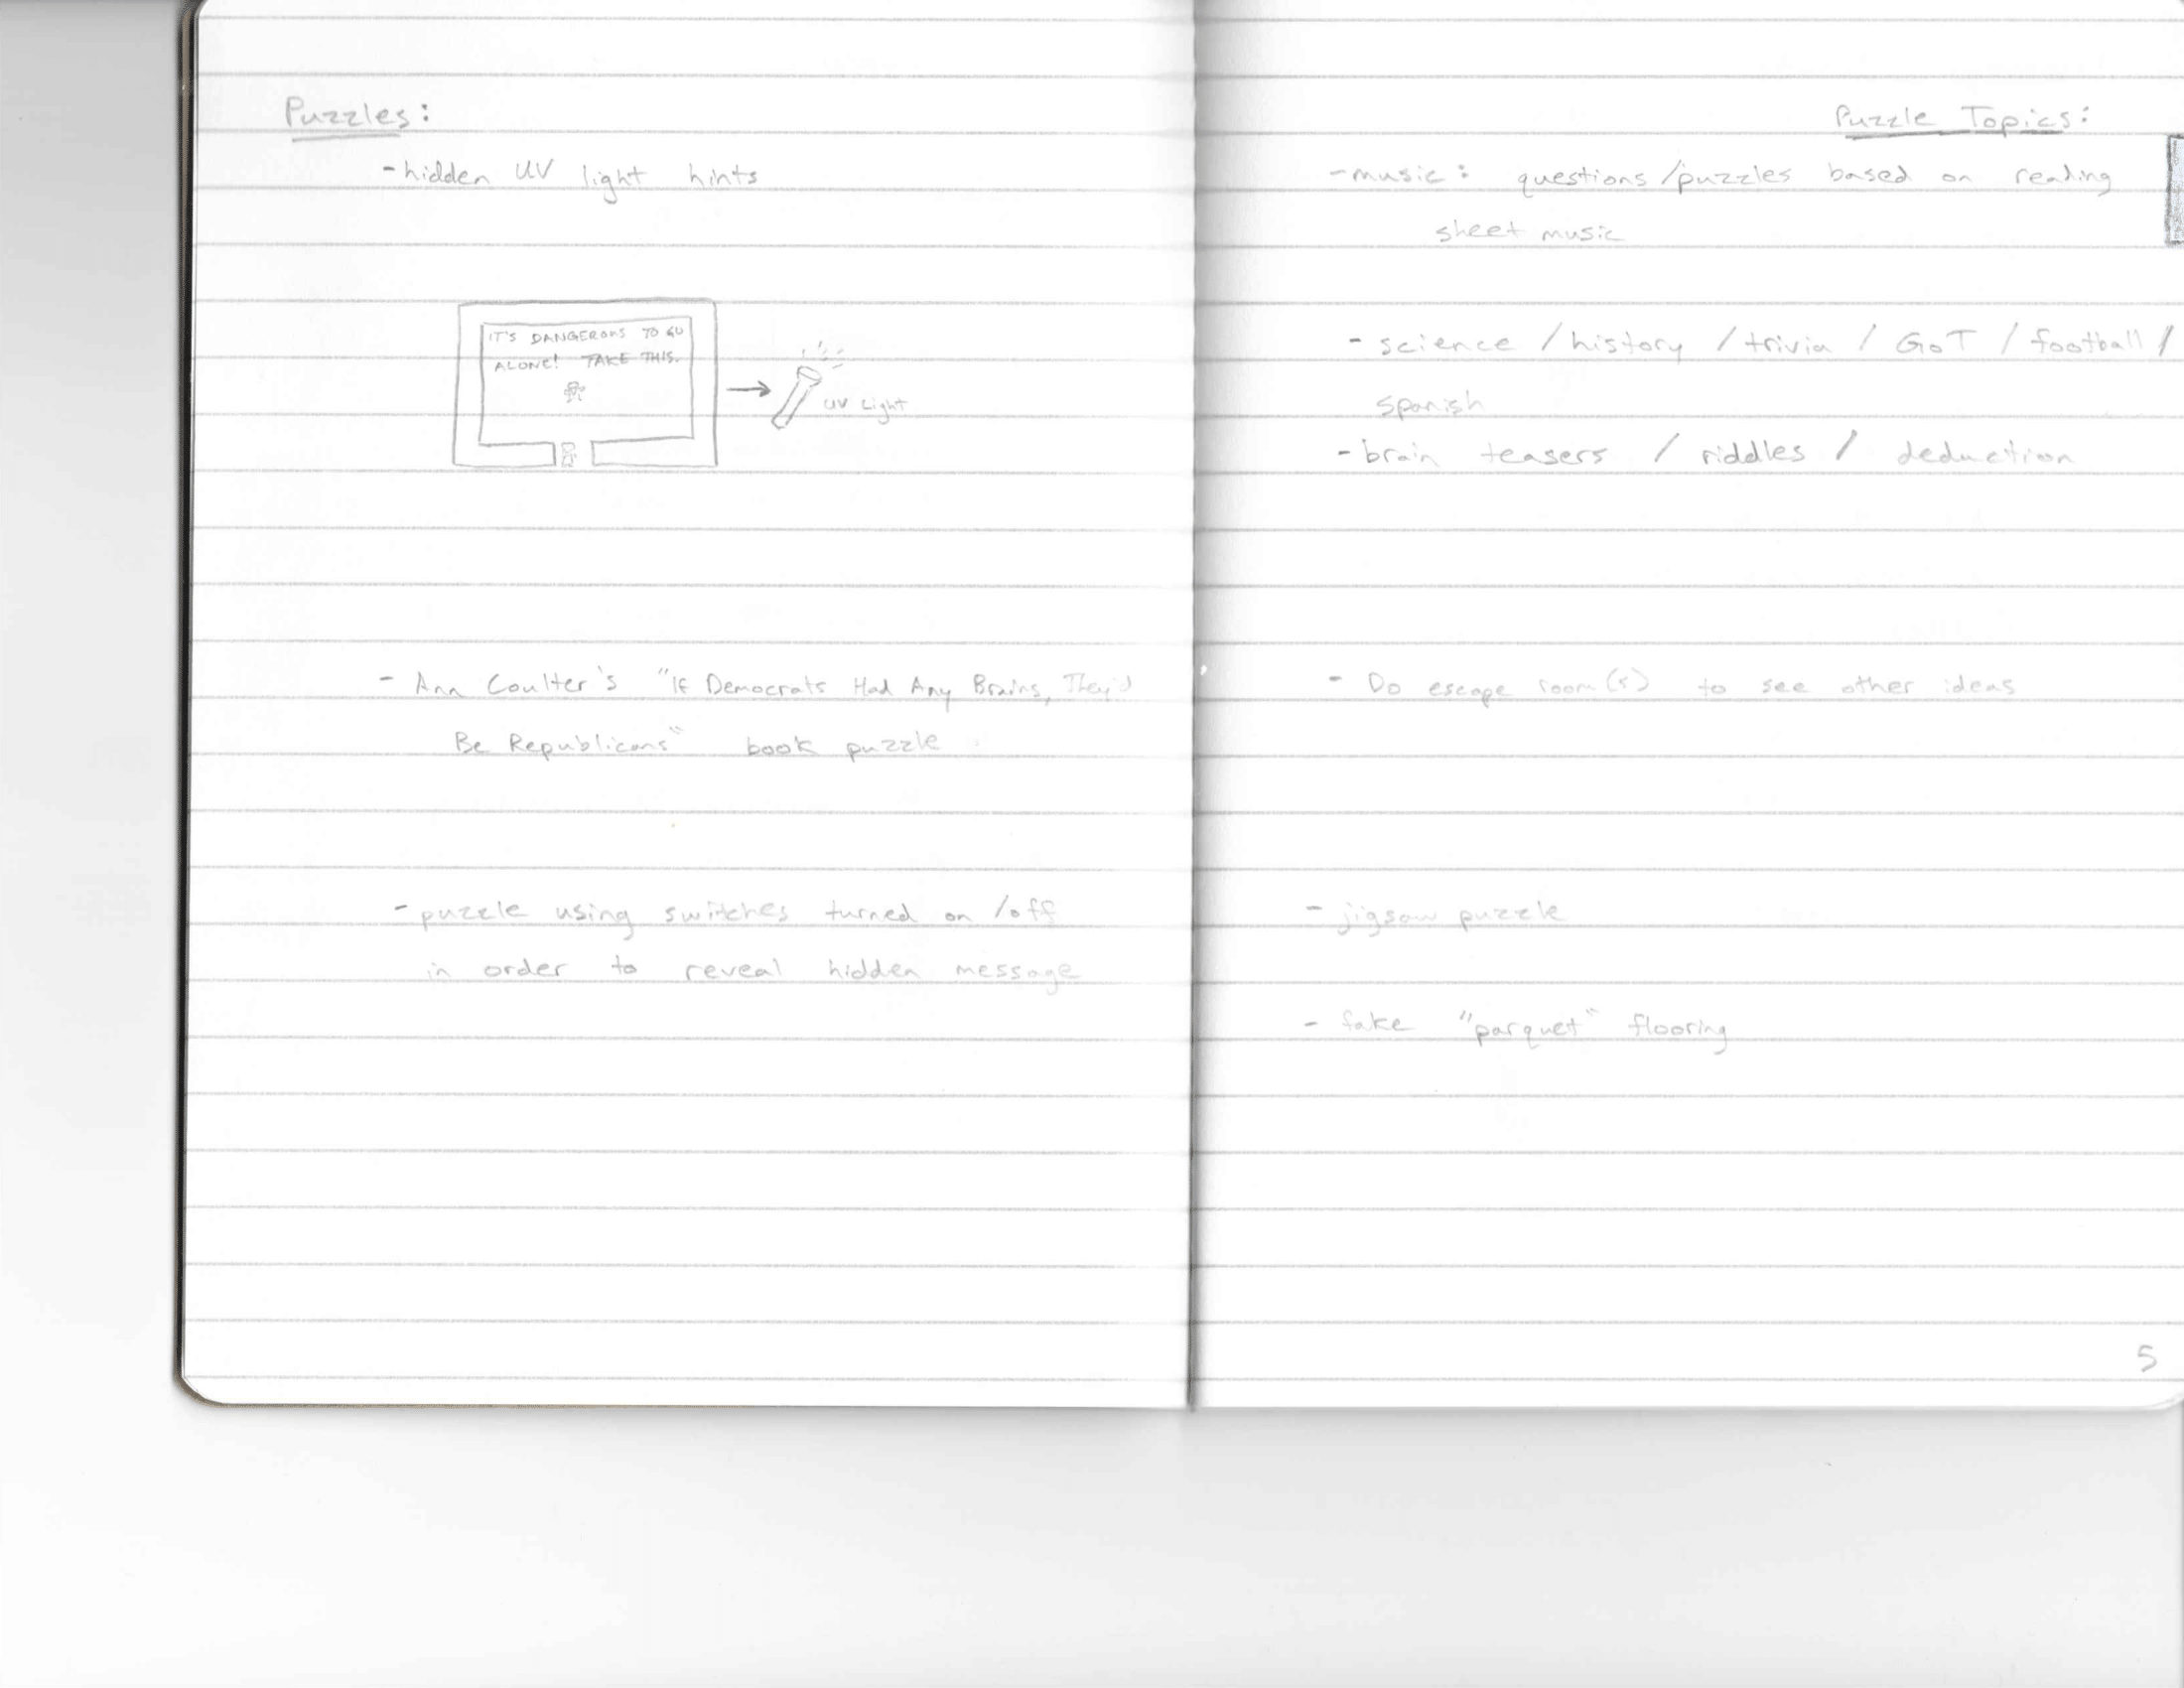 Puzzles:
- hidden UV light hints
IT'S DANGEROUS TO GO
ALONE! TAKE THIS.
UV Light
- Ann Coulter's "If Democrats Had Any Brains, They'd
Be Republicans" book puzzle
- puzzle using switches turned on /off
in order to reveal hidden message
Puzzle Topics:
- music: questions/puzzles based on reading
sheet music
- science / history / trivia / GoT / football /
spanish
- brain teasers / riddles / deduction
- Do escape room(s) to see other ideas
- jigsaw puzzle
- fake "parquet" flooring
5